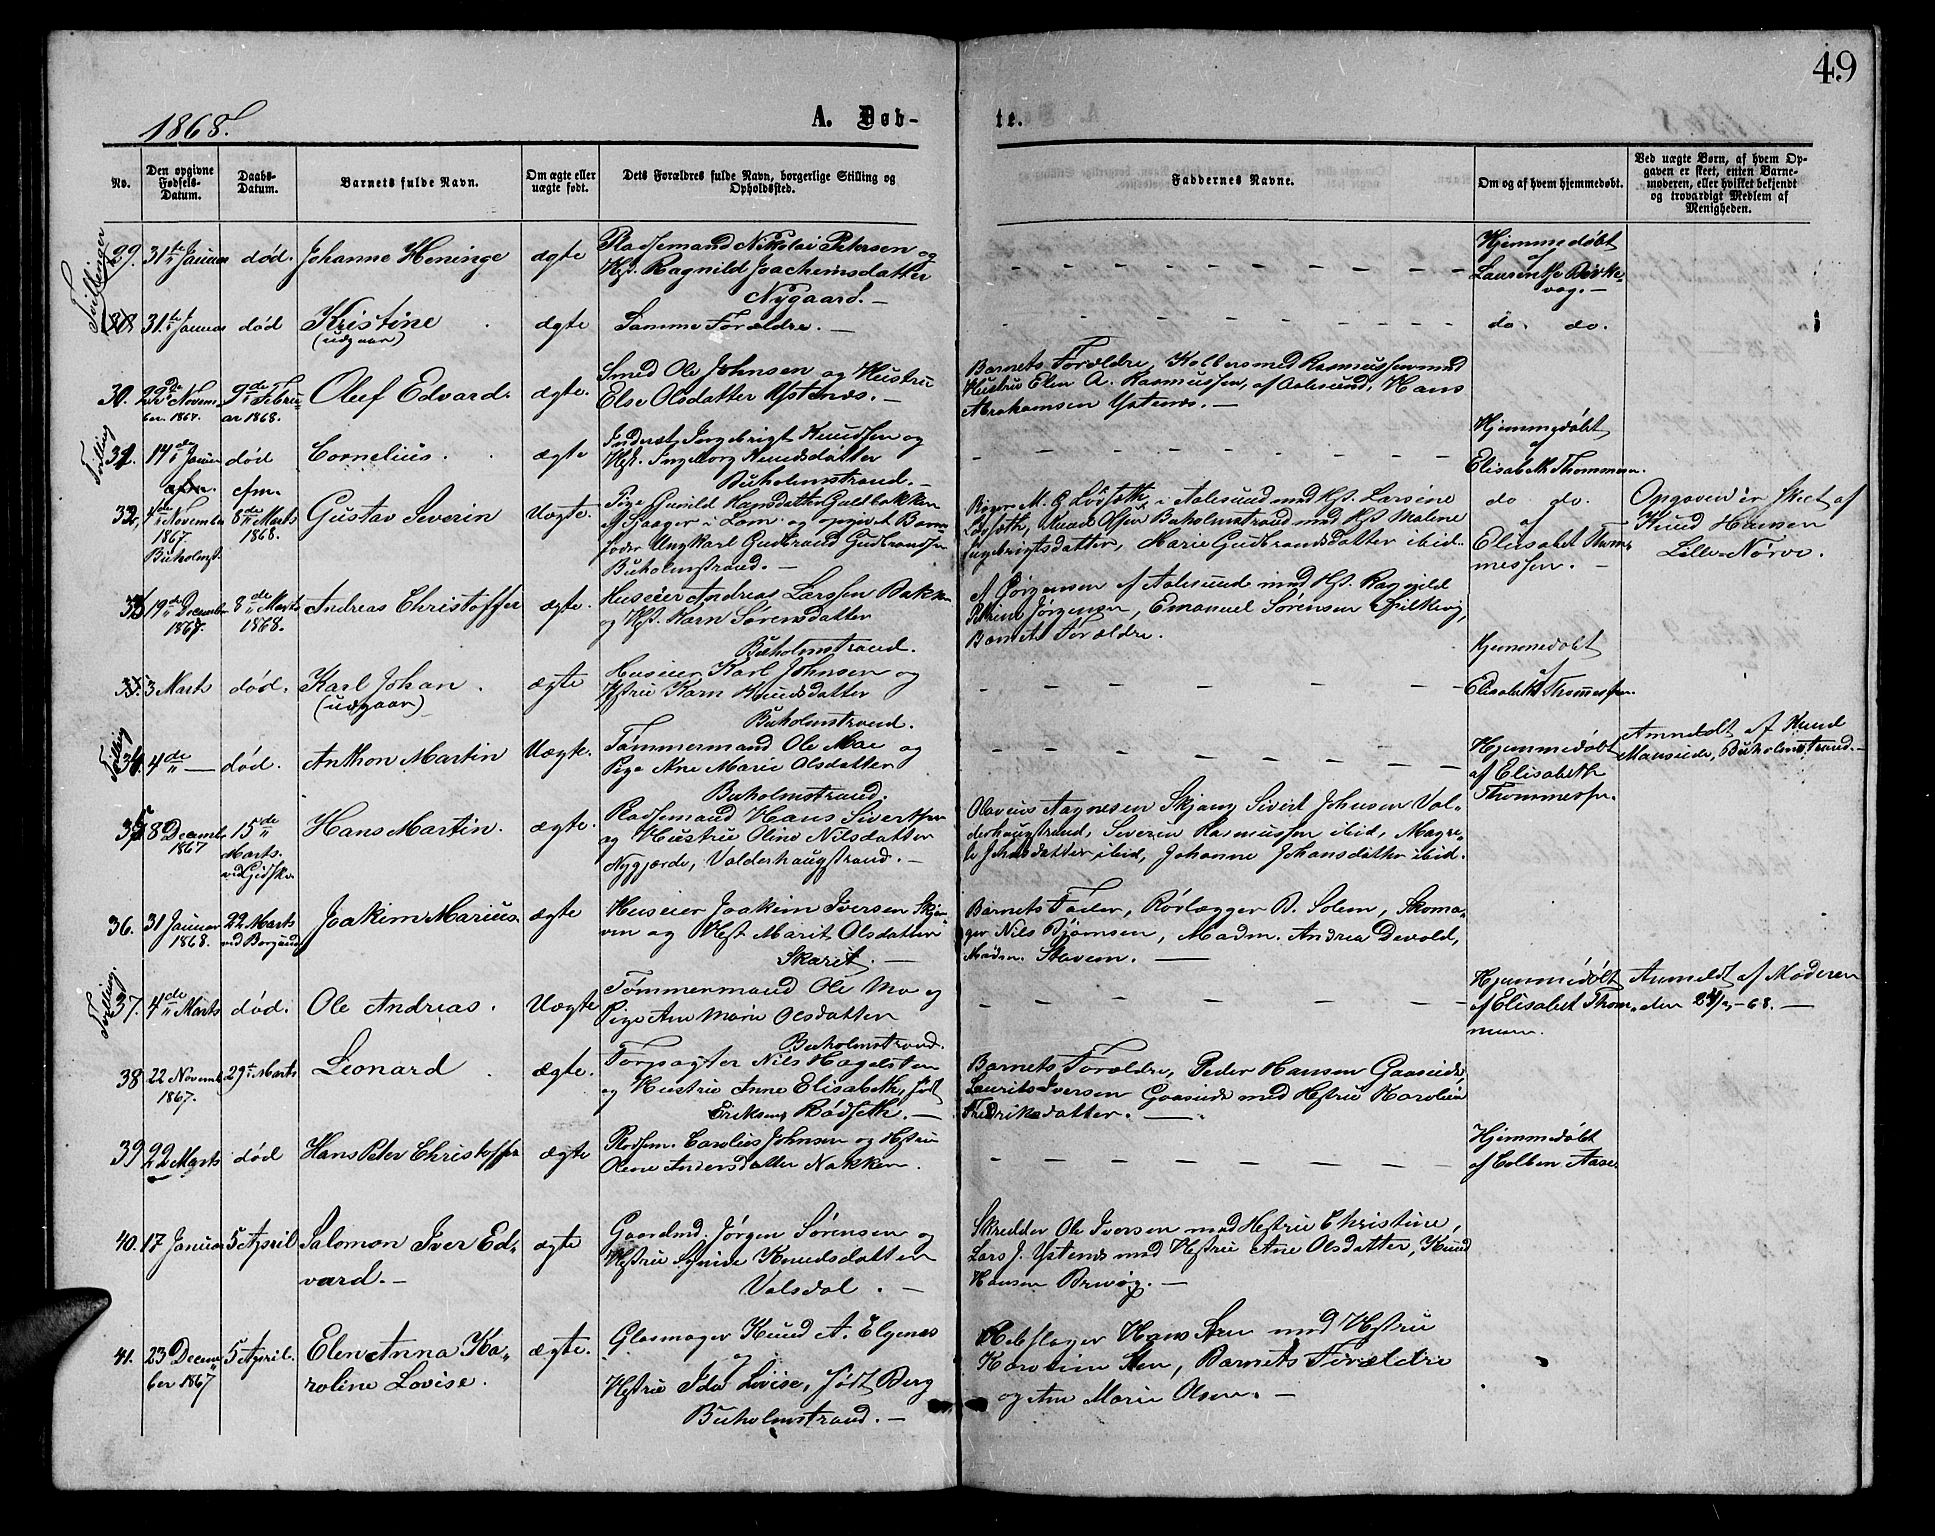 49
1868.
A. Døb-
te.
No.
Den opgivne Fødsels-Datum.
Daabs-Datum.
Barnets fulde Navn.
Om ægte eller uægte født.
Dets Forældres fulde Navn, borgerlige Stilling og Opholdssted.
Faddernes Navne.
Om og af hvem hjemmedøbt.
Ved uægte Børn, af hvem Opgaven er skeet, enten Barnemoderen, eller hvilket bekjendt og troværdigt Medlem af Menigheden.
Tvillinger
29. 31te Januar død. Johanne Heninge ægte Pladsemand Nikolai Petersen og
Hst. Ragnild Joachimsdatter
Nygaard. —
Hjemmedøbt
af
Laurentse Birke-
vog. —
31te Januar død Kristine ægte Samme Forældre. —
(udgaar)
do. do.
30. 22de Novem- 9de Febru- Oluf Edvard. ægte. Smed Ole Johnsen og Hustru
ber. 1867. ar 1868. Else Olsdatter Ystenes. —
Barnets Forældre, Kobbersmed Rasmussen med
Hustru Elen A. Rasmussen, af Aalesund, Hans
Abrahamsen Ystenes. —
Tvilling
31. 14de Januar død Cornelius. ægte Inderst Ingebrigt Knudsen og
Hst. Ingeborg Knudsdatter
Buholmstrand. —
Hjemmedøbt
af
Elisabeth Thommesen.
cfm.
32. 4de November 8de Marts Gustav Severin Uægte. Pige Gunild Hansdatter Galdbakken
1867 1868. af Saager i Lom og opgivet Barne-
Buholmst. fader Ungkarl Gudbrand Gudbrandsen
Buholmstrand. —
M. G. Løvfoth i Aalesund med Hst. Larsine
Løvfoth, Olsen Buholmstrand med Hst. Maline
Ingebrigtsdatter, Marie Gudbrandsdatter ibid.
do do.
af
Elisabet Thom-
messen. —
Opgaven er skeet af
Knud Hansen
Lille-Nørve.
33. 19de December 8de Marts Andreas Christoffer ægte. Huseier Andreas Larssen Bakken
1867. 1868. og Hst. Karn Sørensdatter
Buholmstrand.
A Jørgensen af Aalesund med Hst. Ragnild
Petrine Jørgensen, Emanuel Sørensen Spilkevig,
Barnets Forældre.
3 Marts død. Karl Johan. ægte Huseier Karl Johnsen og
(udgaar) Hstru Karn Knudsdatter
Buholmstrand.
Hjemmedøbt
af
Elisabeth Thommessen.
Tvilling
34. 4de — død. Anthon Martin Uægte. Tømmermand Ole Moe og
Pige Ane Marie Olsdatter
Buholmstrand.
Hjemmedøbt
af Elisabeth
Thommessen.
Anmeldt af Knud
Buholmstrand. —
35. 8 Decemb. 15de Hans Martin. ægte. Pladsemand Hans Sivertsen
1867 Marts. og Hustru Oline Nilsdatter
ved Gidske. Nygjerde, Valderhaugstrand. —
Olavius Aagnesen Skjong Sivert Johnsen Val-
derhaugstrand, Severin Rasmussen ibid, Magre-
te Johnsdatter ibid, Johanne Johansdatter ibid.
36. 31 Januar 22 Marts Joakim Marius. ægte Huseier Joakim Iversen Skjer-
1868. ved Borgund ven og Hst Marit Olsdatter
Skarit. —
Barnets Fader, Rørlægger B. Solem, Skoma-
ger Nils Bjørnsen, Madm. Andrea Devold,
Madm. Stavem. —
Tvilling.
37. 4de Marts død. Ole Andreas. Uægte Tømmermand Ole Mo og
Pige Ane Marie Olsdatter
Buholmstrand.
Hjemmedøbt
af Elisabet Thom-
messen.
Anmeldt af Moderen
den — 68. —
38. 22 Novemb. 29de Marts Leonard ægte. Forpagter Nils Hagelsten
1867. og Hustru Anne Elisabeth, født
Eriksen, Bødseth. —
Barnets Forældre, Peder Hansen Gaaseide,
Laurits Iversen Gaaseide med Hstru Karoline
Fredriksdatter. —
39 22 Marts død Hans Peter Christoffer ægte Pladsem. Carolius Johnsen og Hstru
Olene Andersdatter Nakken.
Hjemmedøbt
af Colben Aase.
40. 17 Januar 5 April Salomon Iver Ed- ægte Gaardmd. Jørgen Sørensen og
vard. — Hstru Synive Knudsdatter
Valsdal. —
Skredder Ole Iversen med Hstru Christine,
Lars J. Ystenes med Hstru Ane Olsdatter, Knud
Hansen Brevig. —
41. 23 Decem- 5 April. Elen Anna Ka- ægte. Glasmager Knud A. Elgenæs
ber 1867 roline Lovise. og
Hstru Ida Lovise, født Berg
Buholmstrand. —
Rebslager Hans med Hstru
Karoline Steen, Barnets Forældre
og Ane Marie Olsen. —